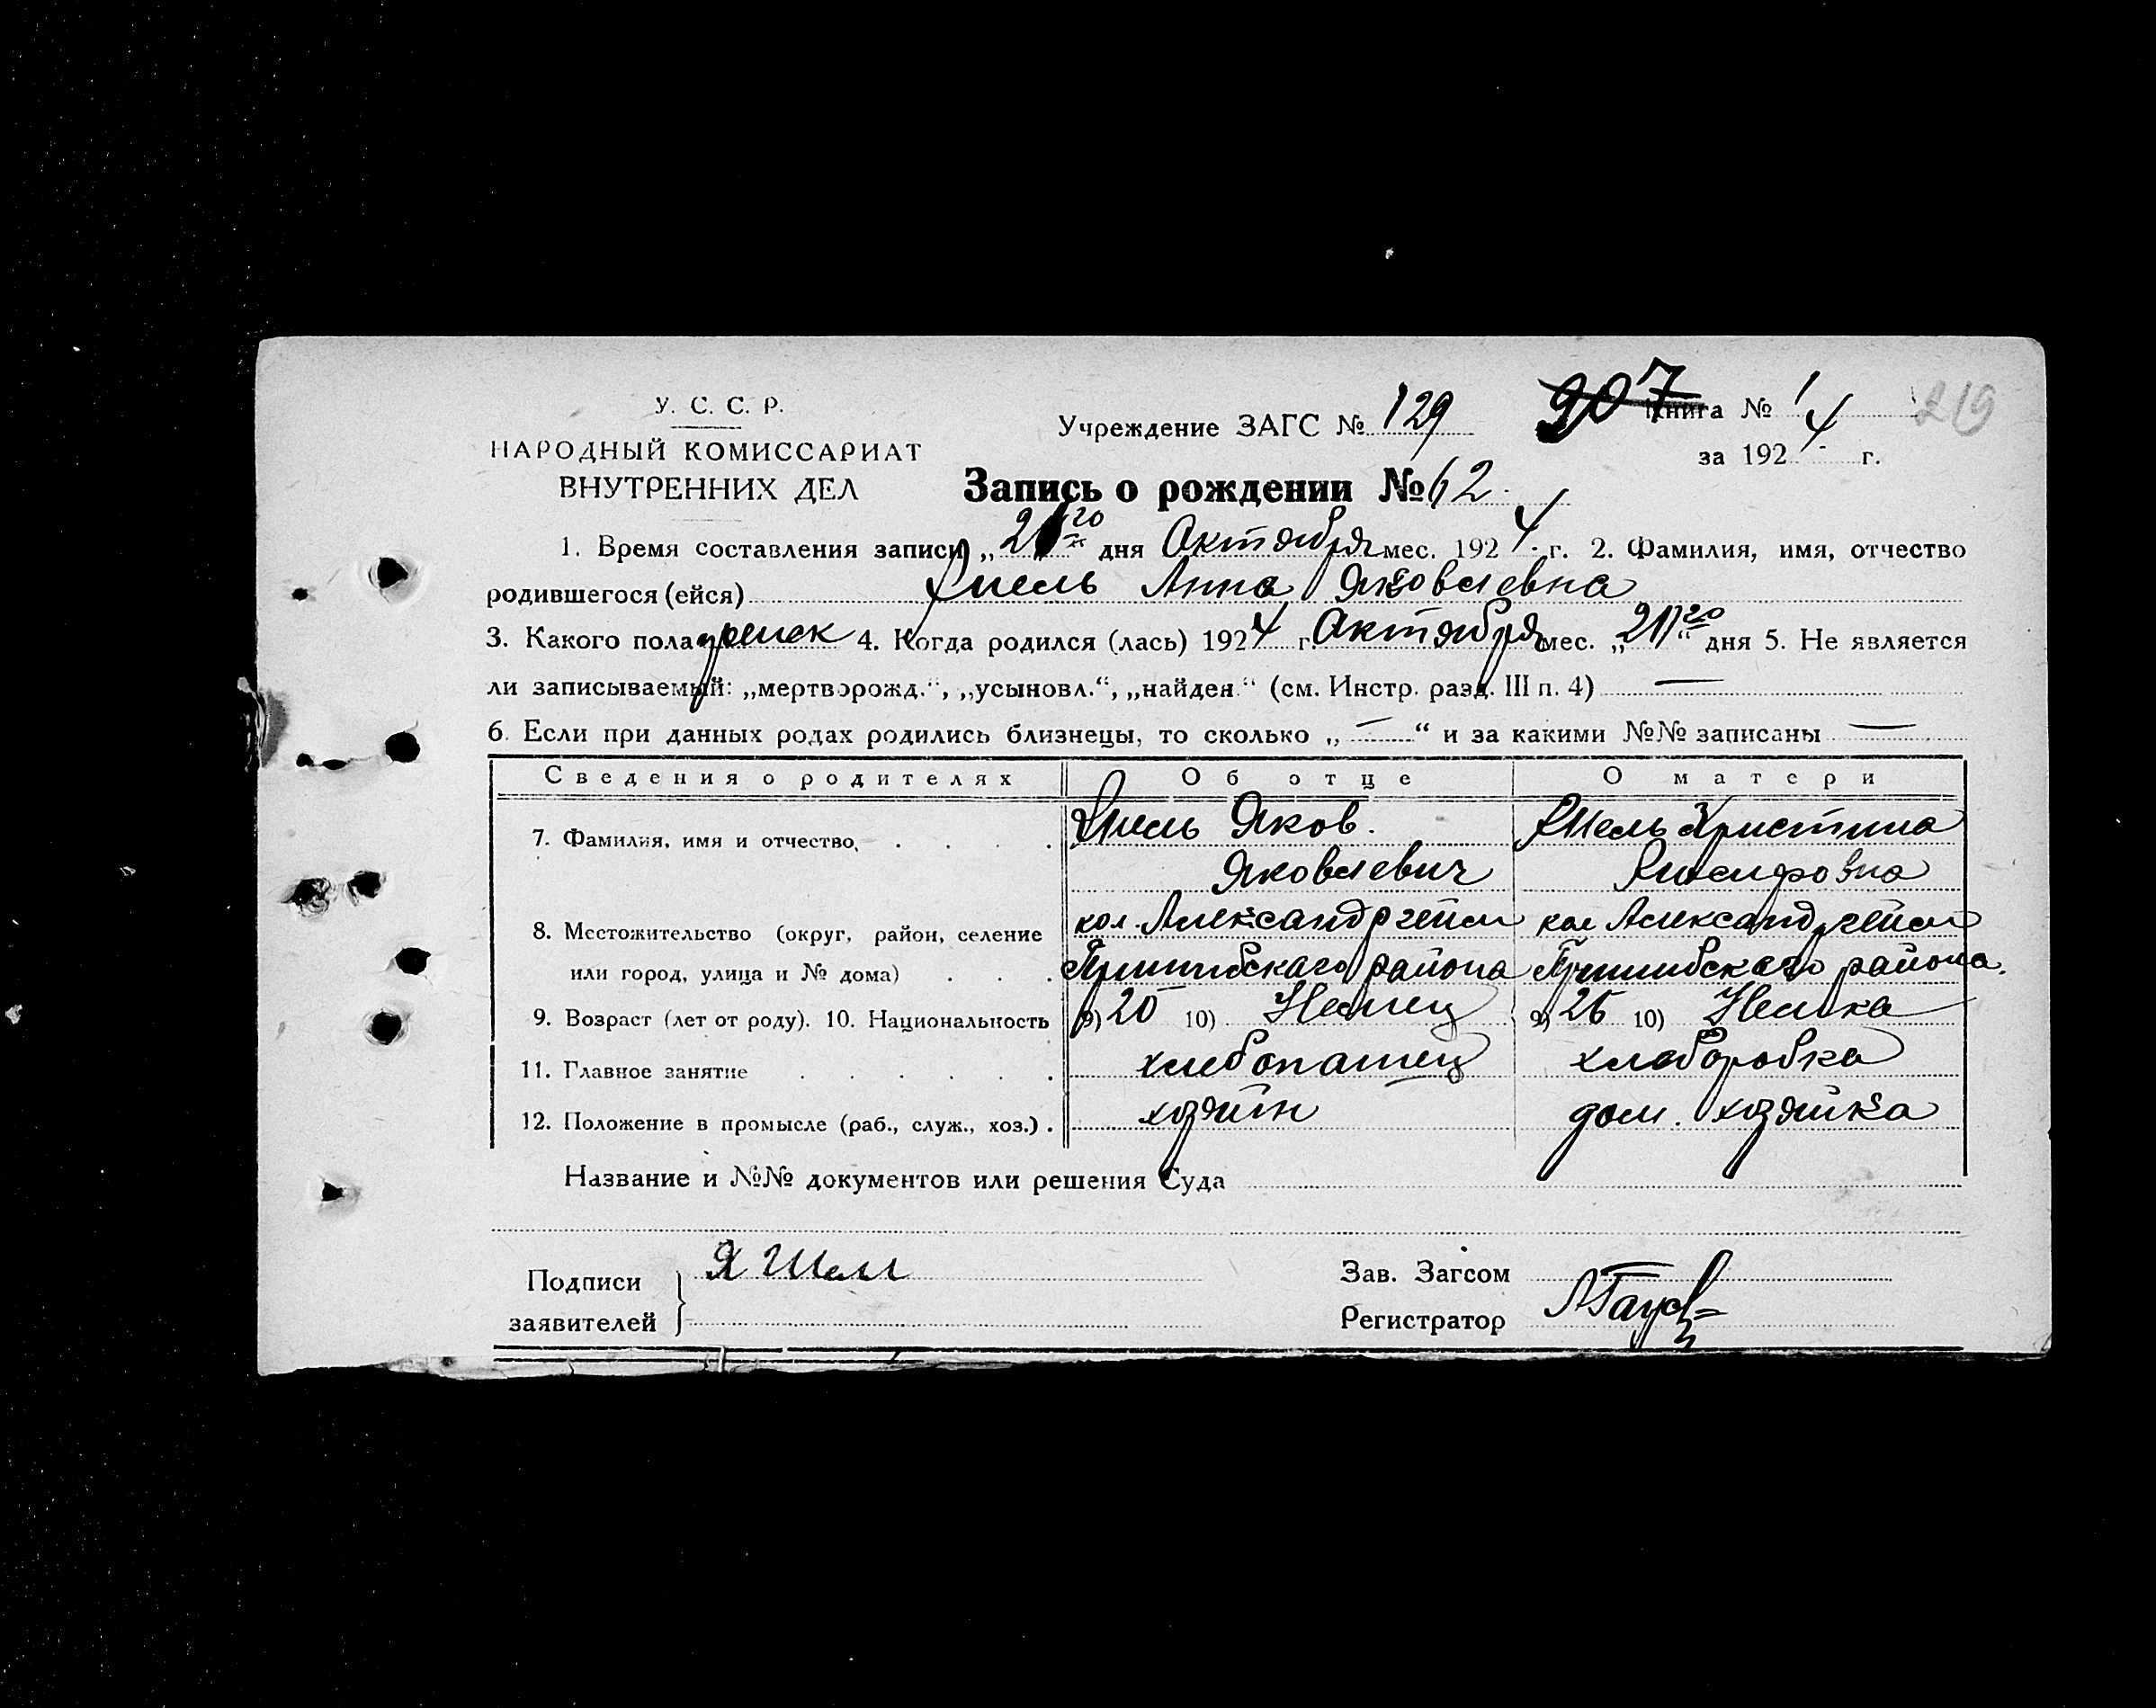 У. С. С. Р.
НАРОДНЫЙ КОМИССАРИАТ
ВНУТРЕННИХ ДЕЛ
Учреждение ЗАГС № 129
907 Книга № 1 219
за 1924 г.
Запись о рождении № 62
1. Время составления записи „ 20 дня Октября мес. 1924 г. 2. Фамилия, имя, отчество
родившегося (ейся) Анна Яковлевна
3. Какого пола женск 4. Когда родился (лась) 1924 г. Октября мес. „ 20 “ дня 5. Не является
ли записываемый: „мертворожд.“, „усыновл.“, „найден.“ (см. Инстр. разд. III п. 4) —
6. Если при данных родах родились близнецы, то сколько „ — “ и за какими №№ записаны —
Сведения о родителях Об отце О матери
7. Фамилия, имя и отчество Яков Христина
Яковлевич
8. Местожительство (округ, район, селение кол. Александргейм кол Александргейм
или город, улица и № дома) Пришибскаго района Пришибскаго района.
9. Возраст (лет от роду). 10. Национальность 9) 25 10) Немец 9) 25 10) Немка
11. Главное занятие хлебопашец хлеборобка
12. Положение в промысле (раб., служ., хоз.) хозяин дом. хозяйка
Название и №№ документов или решения Суда
Подписи Я
заявителей
Зав. Загсом
Регистратор